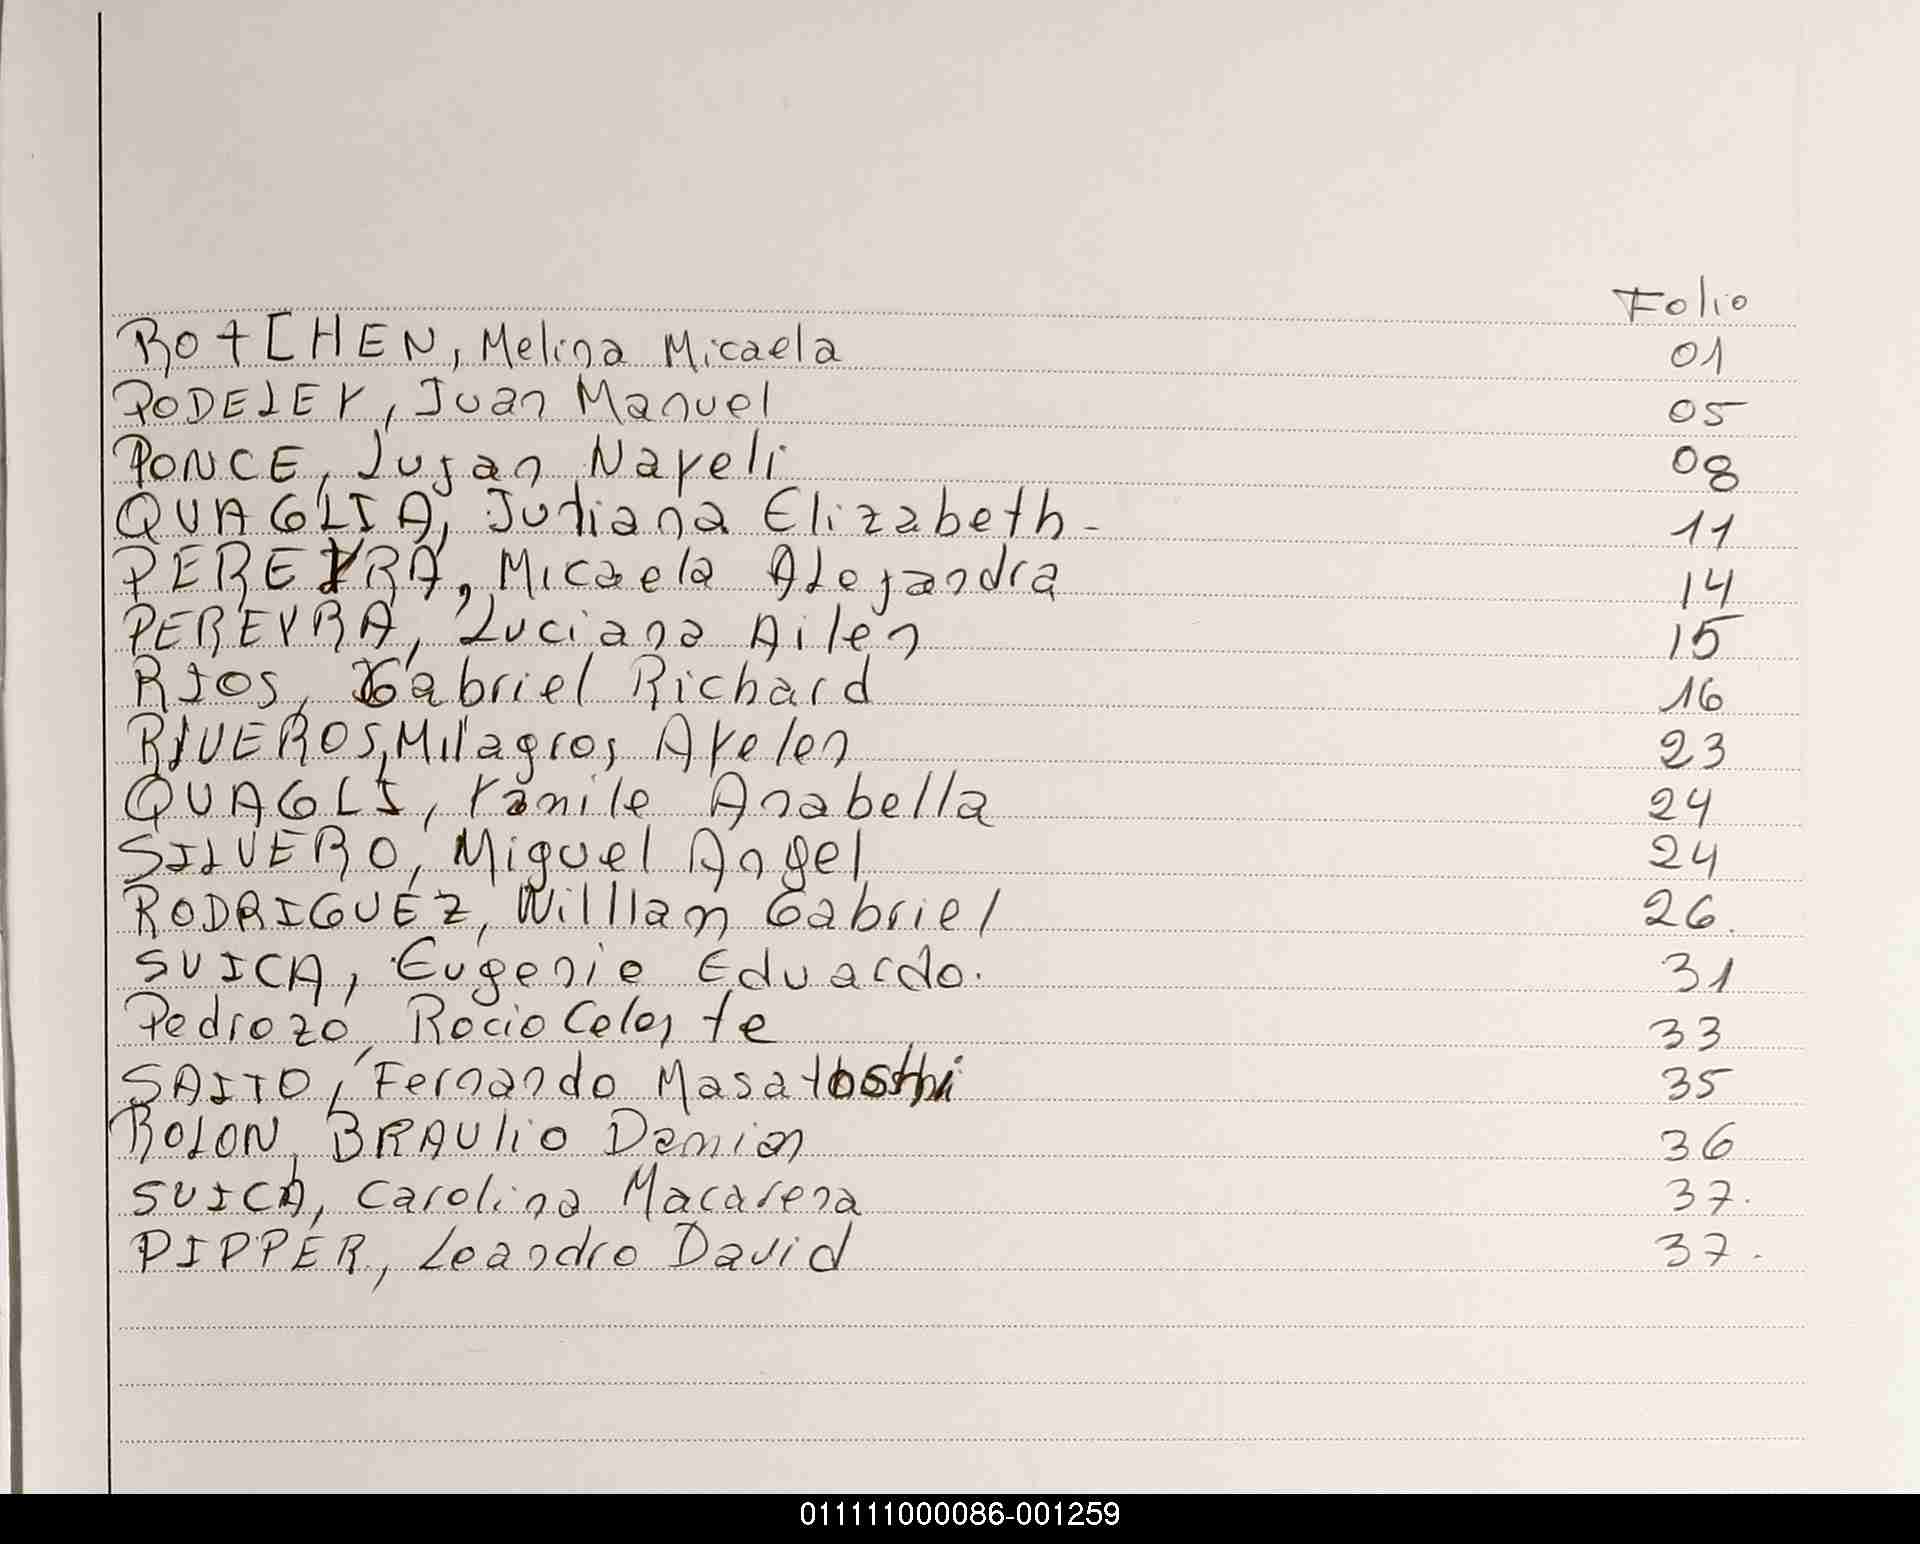 Folio
ROTCHEN, Melina Micaela 01
PODELEY, Juan Manuel 05
PONCE, Lujan Nayeli 08
QUAGLIA, Juliana Elizabeth- 11
PEREYRA, Micaela Alejandra 14
PEREYRA, Luciana Ailen 15
RIOS, Gabriel Richard 16
RIVEROS, Milagros Ayelen 23
QUAGLI, Yamile Anabella 24
SILVERO, Miguel Angel 24
RODRIGUEZ, William Gabriel 26.
SUICA, Eugenie Eduardo. 31
Pedrozo, Rocio Celeste 33
SAITO, Fernando Masatoshi 35
ROLON, BRAULIO Damian 36
SUICA, Carolina Macarena 37.
PIPPER, Leandro David 37.
011111000086-001259